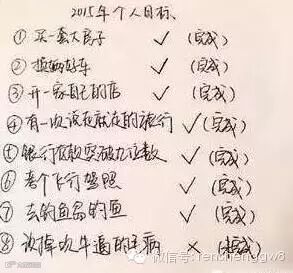 2015年个人目标、
① 买一套大房子 ✓ (完成)
② 换辆好车 ✓ (完成)
③ 开一家自己的店 ✓ (完成)
④ 有一次说走就走的旅行 ✓ (完成)
⑤ 银行存款突破九位数 ✓ (完成)
⑥ 考个飞行驾照 ✓ (完成)
⑦ 去钓鱼岛钓鱼 ✓ (完成)
⑧ 改掉吹牛逼的毛病 ×
微信号: